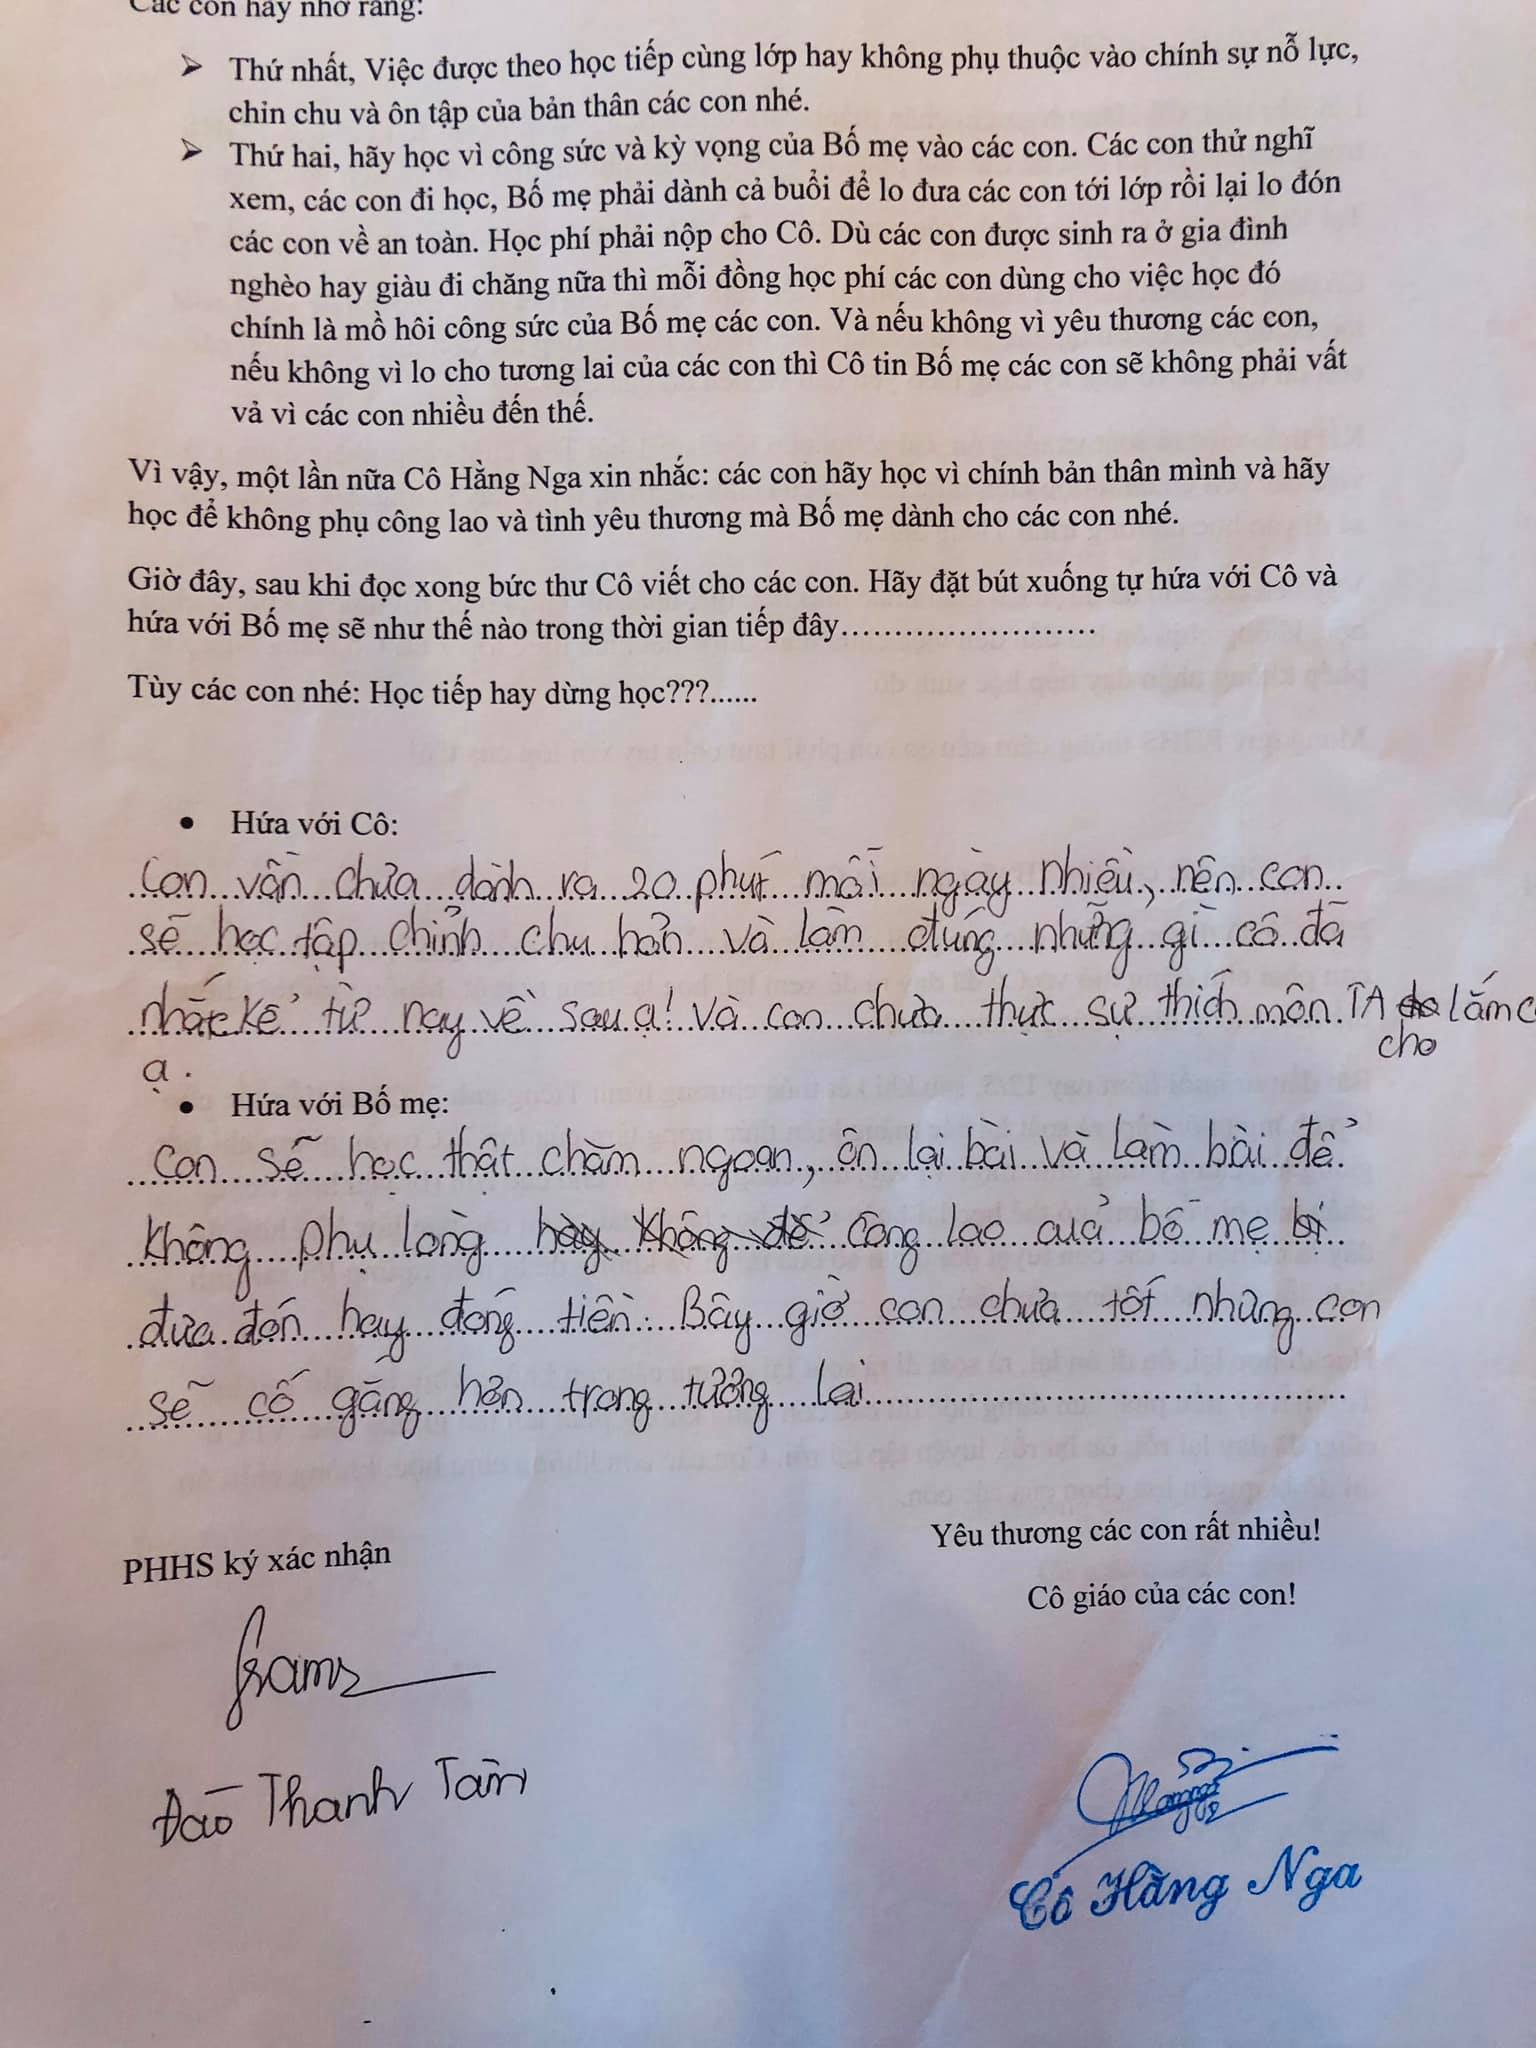 Các con hãy nhớ rằng:
➢ Thứ nhất, Việc được theo học tiếp cùng lớp hay không phụ thuộc vào chính sự nỗ lực,
chin chu và ôn tập của bản thân các con nhé.
➢ Thứ hai, hãy học vì công sức và kỳ vọng của Bố mẹ vào các con. Các con thử nghĩ
xem, các con đi học, Bố mẹ phải dành cả buổi để lo đưa các con tới lớp rồi lại lo đón
các con về an toàn. Học phí phải nộp cho Cô. Dù các con được sinh ra ở gia đình
nghèo hay giàu đi chăng nữa thì mỗi đồng học phí các con dùng cho việc học đó
chính là mồ hôi công sức của Bố mẹ các con. Và nếu không vì yêu thương các con,
nếu không vì lo cho tương lai của các con thì Cô tin Bố mẹ các con sẽ không phải vất
vả vì các con nhiều đến thế.
Vì vậy, một lần nữa Cô Hằng Nga xin nhắc: các con hãy học vì chính bản thân mình và hãy
học để không phụ công lao và tình yêu thương mà Bố mẹ dành cho các con nhé.
Giờ đây, sau khi đọc xong bức thư Cô viết cho các con. Hãy đặt bút xuống tự hứa với Cô và
hứa với Bố mẹ sẽ như thế nào trong thời gian tiếp đây...........................
Tùy các con nhé: Học tiếp hay dừng học???......
• Hứa với Cô:
Con vẫn chưa dành ra 20 phút mỗi ngày nhiều, nên con
sẽ học tập chỉnh chu hơn và làm đúng những gì cô đã
nhắc kể từ nay về sau ạ! Và con chưa thực sự thích môn TA lắm
cho
ạ.
• Hứa với Bố mẹ:
Con sẽ học thật chăm ngoan, ôn lại bài và làm bài để
không phụ lòng công lao quả bố mẹ
đưa đón hay đóng tiền. Bây giờ con chưa tốt nhưng con
sẽ cố gắng hơn trong tương lai
Yêu thương các con rất nhiều!
PHHS ký xác nhận
Cô giáo của các con!
Đào Thanh Tâm
Cô Hằng Nga